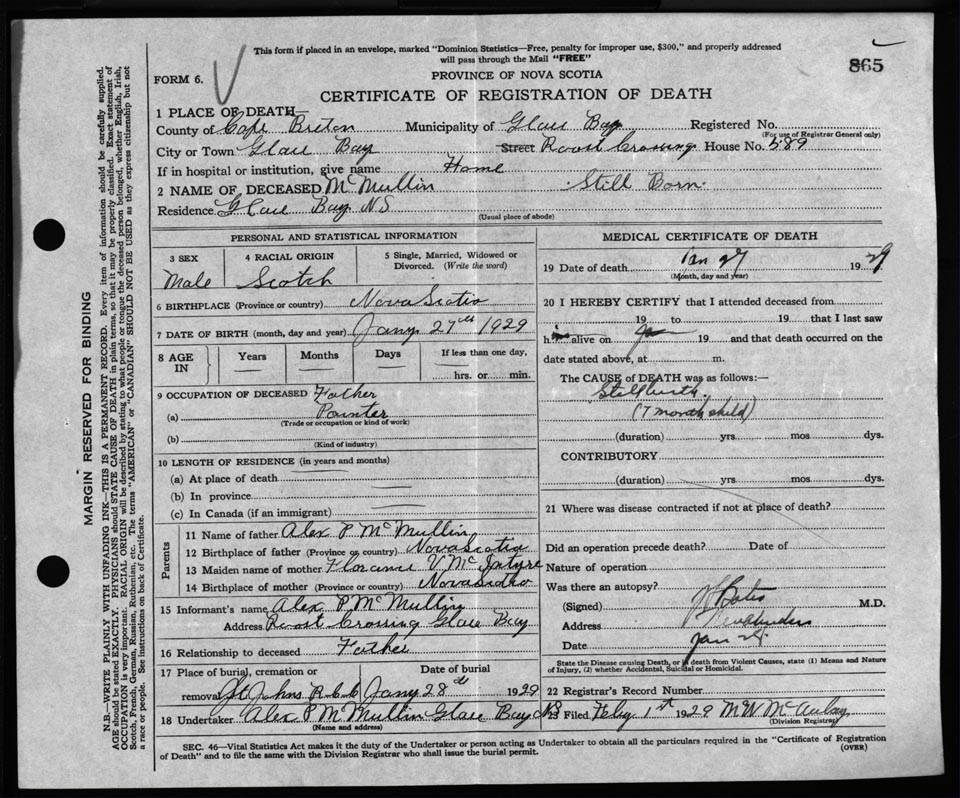 This form if placed in an envelope, marked "Dominion Statistics—Free, penalty for improper use, $300," and properly addressed
will pass through the Mail "FREE"
865
FORM 6.
PROVINCE OF NOVA SCOTIA
CERTIFICATE OF REGISTRATION OF DEATH
1 PLACE OF DEATH—
County of Cape Breton Municipality of Glace Bay Registered No.
(For use of Registrar General only)
City or Town Glace Bay Street Roost Crossing House No. 589
If in hospital or institution, give name Home
2 NAME OF DECEASED McMullin Still Born
Residence Glace Bay NS
(Usual place of abode)
PERSONAL AND STATISTICAL INFORMATION
3 SEX
Male
4 RACIAL ORIGIN
Scotch
5 Single, Married, Widowed or
Divorced. (Write the word)
6 BIRTHPLACE (Province or country) Nova Scotia
7 DATE OF BIRTH (month, day and year) Jany 27th 1929
8 AGE IN
Years
Months
Days
If less than one day,
hrs. or min.
9 OCCUPATION OF DECEASED Father
(a) Painter
(Trade or occupation or kind of work)
(b)
(Kind of industry)
10 LENGTH OF RESIDENCE (in years and months)
(a) At place of death
(b) In province
(c) In Canada (if an immigrant)
Parents
11 Name of father Alex P McMullin
12 Birthplace of father (Province or country) Nova Scotia
13 Maiden name of mother Florence V McIntyre
14 Birthplace of mother (Province or country) Nova Scotia
15 Informant's name Alex P McMullin
Address Roost Crossing Glace Bay
16 Relationship to deceased Father
17 Place of burial, cremation or
removal St Johns R.C.C
Date of burial
Jany 28th 1929
18 Undertaker Alex P McMullin Glace Bay NS
(Name and address)
MEDICAL CERTIFICATE OF DEATH
19 Date of death Jan 27 1929
(Month, day and year)
20 I HEREBY CERTIFY that I attended deceased from
19 to 19 that I last saw
him alive on 19 and that death occurred on the
date stated above, at m.
The CAUSE of DEATH was as follows:—
Stillbirth
(7 month child)
(duration) yrs. mos dys.
CONTRIBUTORY
(duration) yrs. mos. dys.
21 Where was disease contracted if not at place of death?
Did an operation precede death? Date of
Nature of operation
Was there an autopsy?
(Signed) Bates M.D.
Address
Date Jan
State the Disease causing Death, or in death from Violent Causes, state (1) Means and Nature
of Injury, (2) whether Accidental, Suicidal or Homicidal.
22 Registrar's Record Number
23 Filed Feby 1st 1929 M W McAulay
(Division Registrar)
SEC. 46—Vital Statistics Act makes it the duty of the Undertaker or person acting as Undertaker to obtain all the particulars required in the "Certificate of Registration
of Death" and to file the same with the Division Registrar who shall issue the burial permit.
(OVER)
MARGIN RESERVED FOR BINDING
N.B.—WRITE PLAINLY WITH UNFADING INK—THIS IS A PERMANENT RECORD. Every item of information should be carefully supplied.
AGE should be stated EXACTLY. PHYSICIANS should STATE CAUSE OF DEATH in plain terms, so that it may be properly classified. Exact statement of
OCCUPATION is very important. RACIAL ORIGIN will be described by stating to what people or tongue the deceased person belonged, whether English, Irish,
Scotch, French, German, Russian, Ruthenian, etc. The terms "AMERICAN" or "CANADIAN" SHOULD NOT BE USED as they express citizenship but not
a race or people. See instructions on back of Certificate.